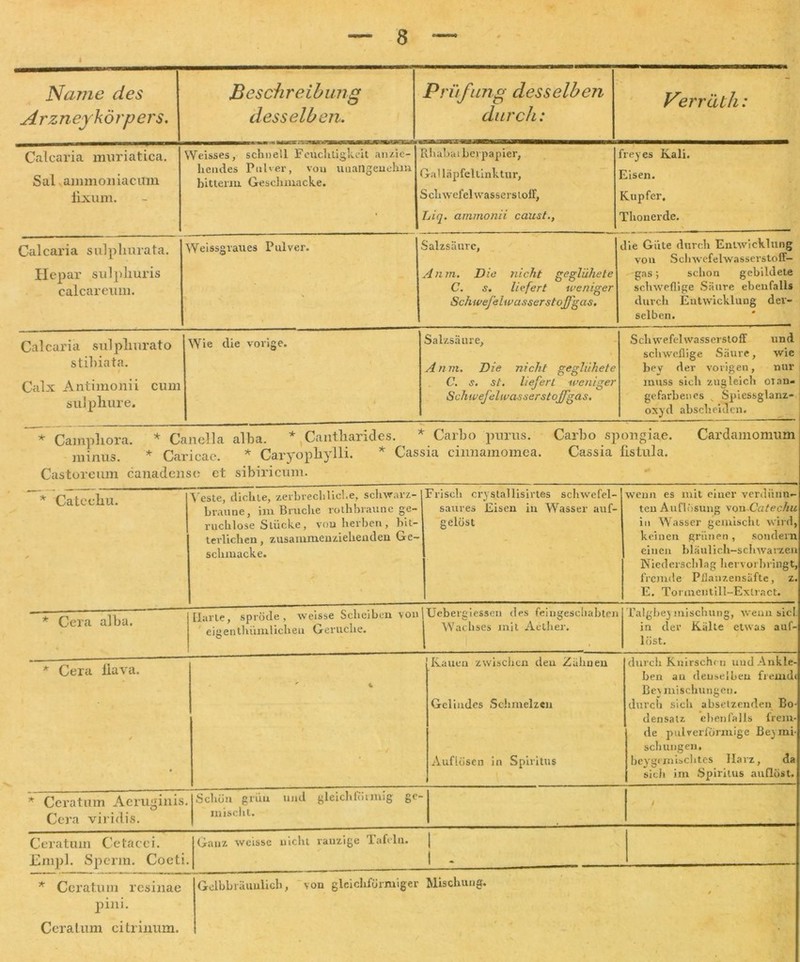 — 8 —
Name des
Arzneykörpers.
Beschreibung
desselben.
Prüfung desselben
durch:
Verräth:
Calcaria muriatica.
Sal ammoniacum
fixum.
Weisses, schnell Feuchtigkeit anzie-
hendes Pulver, von unangenehm
bitterm Geschmacke.
Rhabarberpapier,
Galläpfeltinktur,
Schwefelwasserstoff,
Liq. ammonii caust.,
freyes Kali.
Eisen.
Kupfer.
Thonerde.
Calcaria sulphurata.
Hepar sulphuris
calcareum.
Weissgraues Pulver.
Salzsäure,
Anm. Die nicht geglühete
C. s. liefert weniger
Schwefelwasserstoffgas.
die Güte durch Entwicklung
von Schwefelwasserstoff-
gas; schon gebildete
schweflige Säure ebenfalls
durch Entwicklung der-
selben.
Calcaria sulphurato
stibiata.
Calx Antimonii cum
sulphure.
Wie die vorige.
Salzsäure,
Anm. Die nicht geglühete
C. s. st. liefert weniger
Schwefelwasserstoffgas.
Schwefelwasserstoff und
schweflige Säure, wie
bey der vorigen, nur
muss sich zugleich oran-
gefarbenes Spiessglanz-
oxyd abscheiden.
* Camphora. * Canella alba. * Cantharides. * Carbo purus. Carbo spongiae. Cardamomum
minus. * Caricae. * Caryophylli. * Cassia cinnamomea. Cassia fistula.
Castoreum canadense et sibiricum.
* Catechu.
Veste, dichte, zerbrechliche, schwarz-
braune, im Bruche rothbraune ge-
ruchlose Stücke, von herben, bit-
terlichen, zusammenziehenden Ge-
schmacke.
Frisch crystallisirtes schwefel-
saures Eisen in Wasser auf-
gelöst
wenn es mit einer verdünn-
ten Auflösung von Catechu
in Wasser gemischt wird,
keinen grünen, sondern
einen bläulich-schwarzen
Niederschlag hervorbringt,
fremde Pflanzensäfte, z.
E. Tormentill-Extract.
* Cera alba.
Harte, spröde, weisse Scheiben von
eigenthümlichen Geruche.
Uebergiessen des feingeschabten
Wachses mit Aether.
Talgbeymischung, wenn sich
in der Kälte etwas auf-
löst.
* Cera flava.
Kauen zwischen den Zähnen
Gelindes Schmelzen
Auflösen in Spiritus
durch Knirschen und Ankle-
ben an denselben fremde
Beymischungen.
durch sich absetzenden Bo-
densatz ebenfalls frem-
de pulverförmige Beymi-
schungen.
beygemischtes Harz, da
sich im Spiritus auflöst.
* Ceratum Aeruginis.
Cera viridis.
Schön grün und gleichförmig ge-
mischt.
Ceratum Cetacei.
Empl. Sperm. Coeti.
Ganz weisse nicht ranzige Tafeln.
* Ceratum resinae
pini.
Ceratum citrinum.
Gelbbräunlich, von gleichförmiger Mischung.